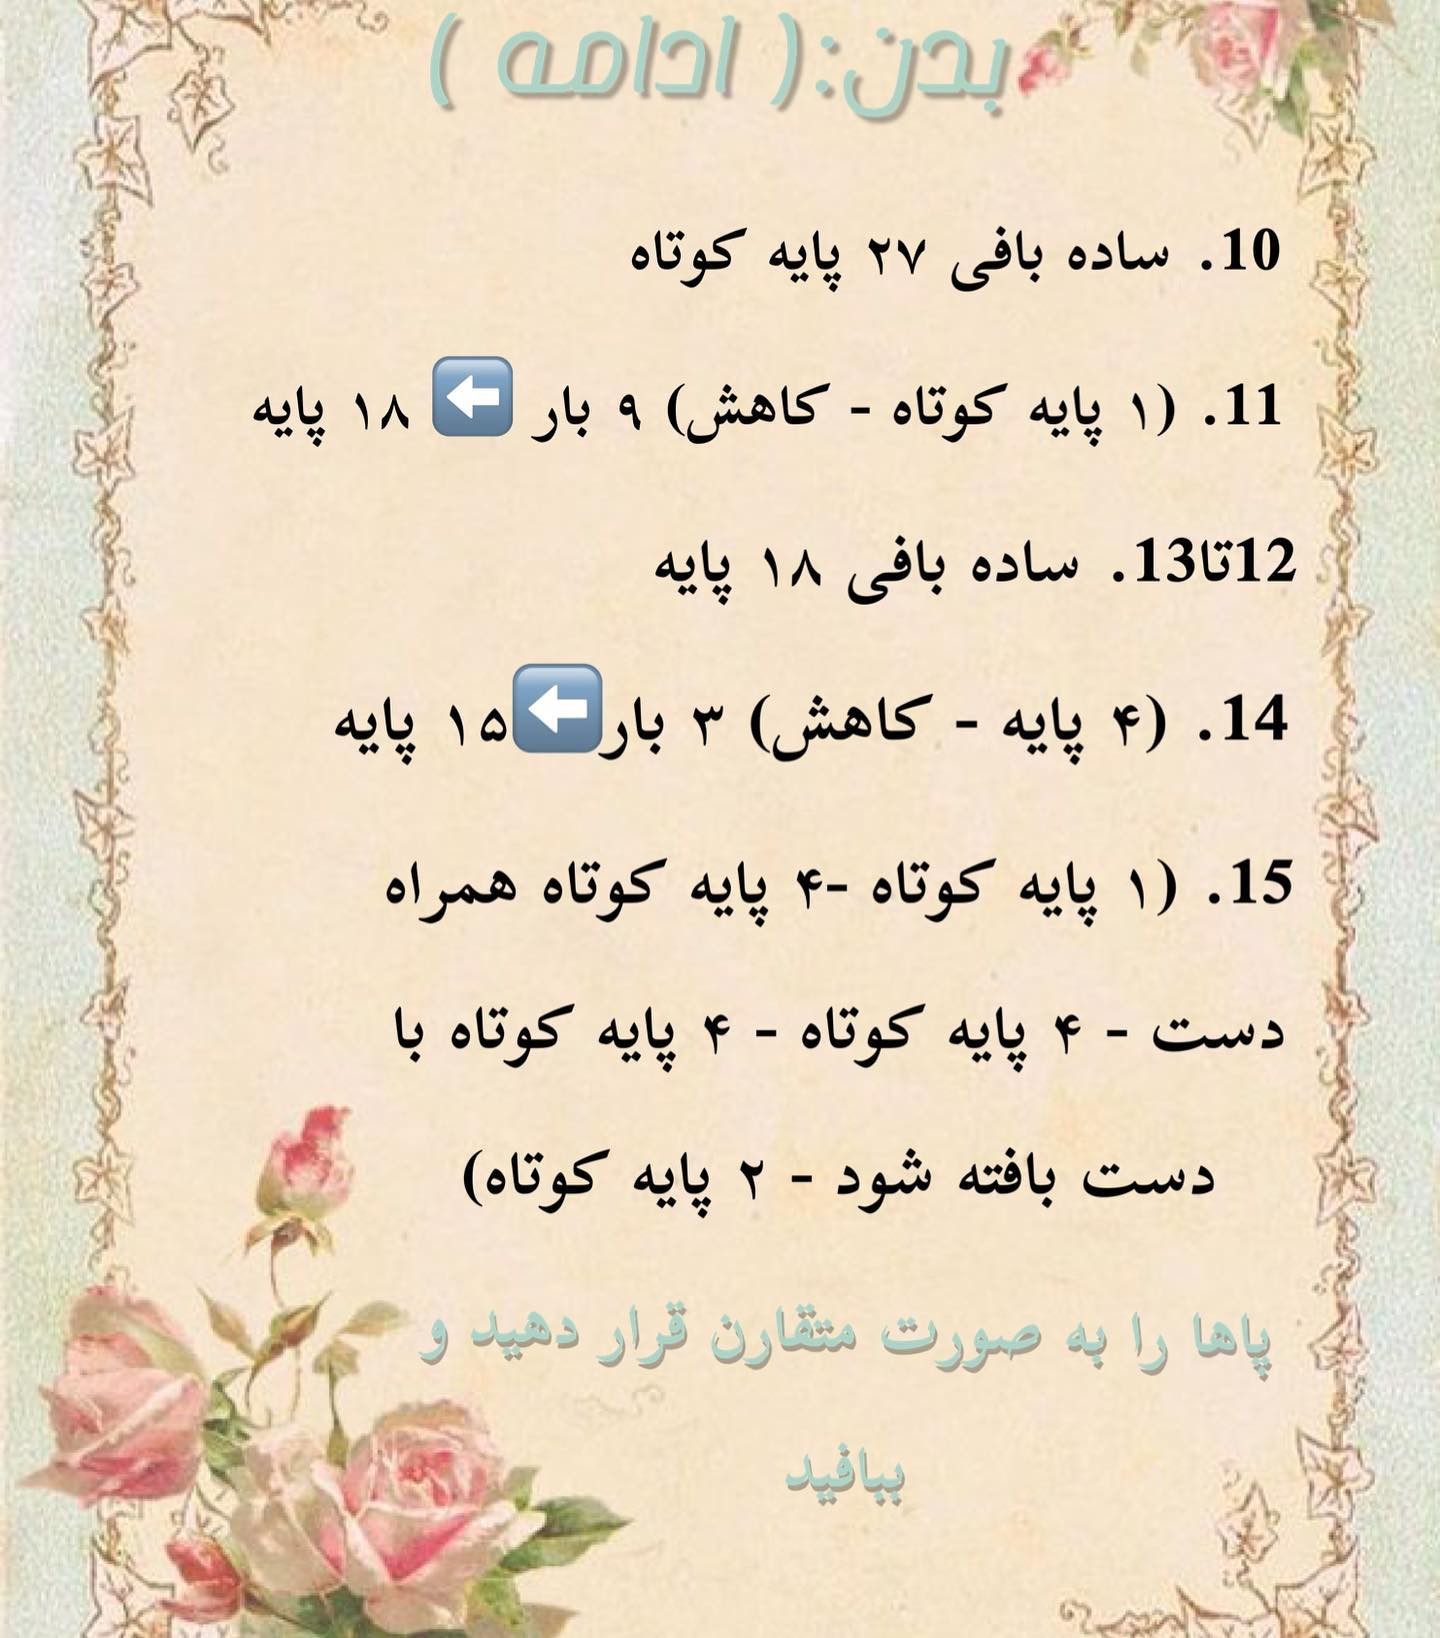 بدن:( ادامه )
10. ساده بافی ۲۷ پایه کوتاه
11. (۱ پایه کوتاه - کاهش) ۹ بار ⬅️ ۱۸ پایه
12تا13. ساده بافی ۱۸ پایه
14. (۴ پایه - کاهش) ۳ بار⬅️۱۵ پایه
15. (۱ پایه کوتاه -۴ پایه کوتاه همراه
دست - ۴ پایه کوتاه - ۴ پایه کوتاه با
دست بافته شود - ۲ پایه کوتاه)
پاها را به صورت متقارن قرار دهید و
ببافید